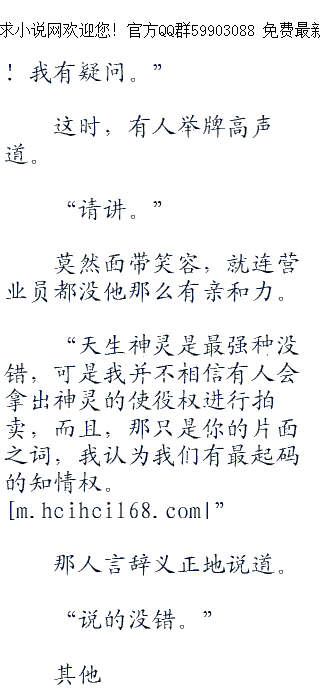 求小说网欢迎您！官方QQ群59903088 免费最新
！我有疑问。”
这时，有人举牌高声
道。
“请讲。”
莫然面带笑容，就连营
业员都没他那么有亲和力。
“天生神灵是最强种没
错，可是我并不相信有人会
拿出神灵的使役权进行拍
卖，而且，那只是你的片面
之词，我认为我们有最起码
的知情权。
[m.hcihci168.com|”
那人言辞义正地说道。
“说的没错。”
其他